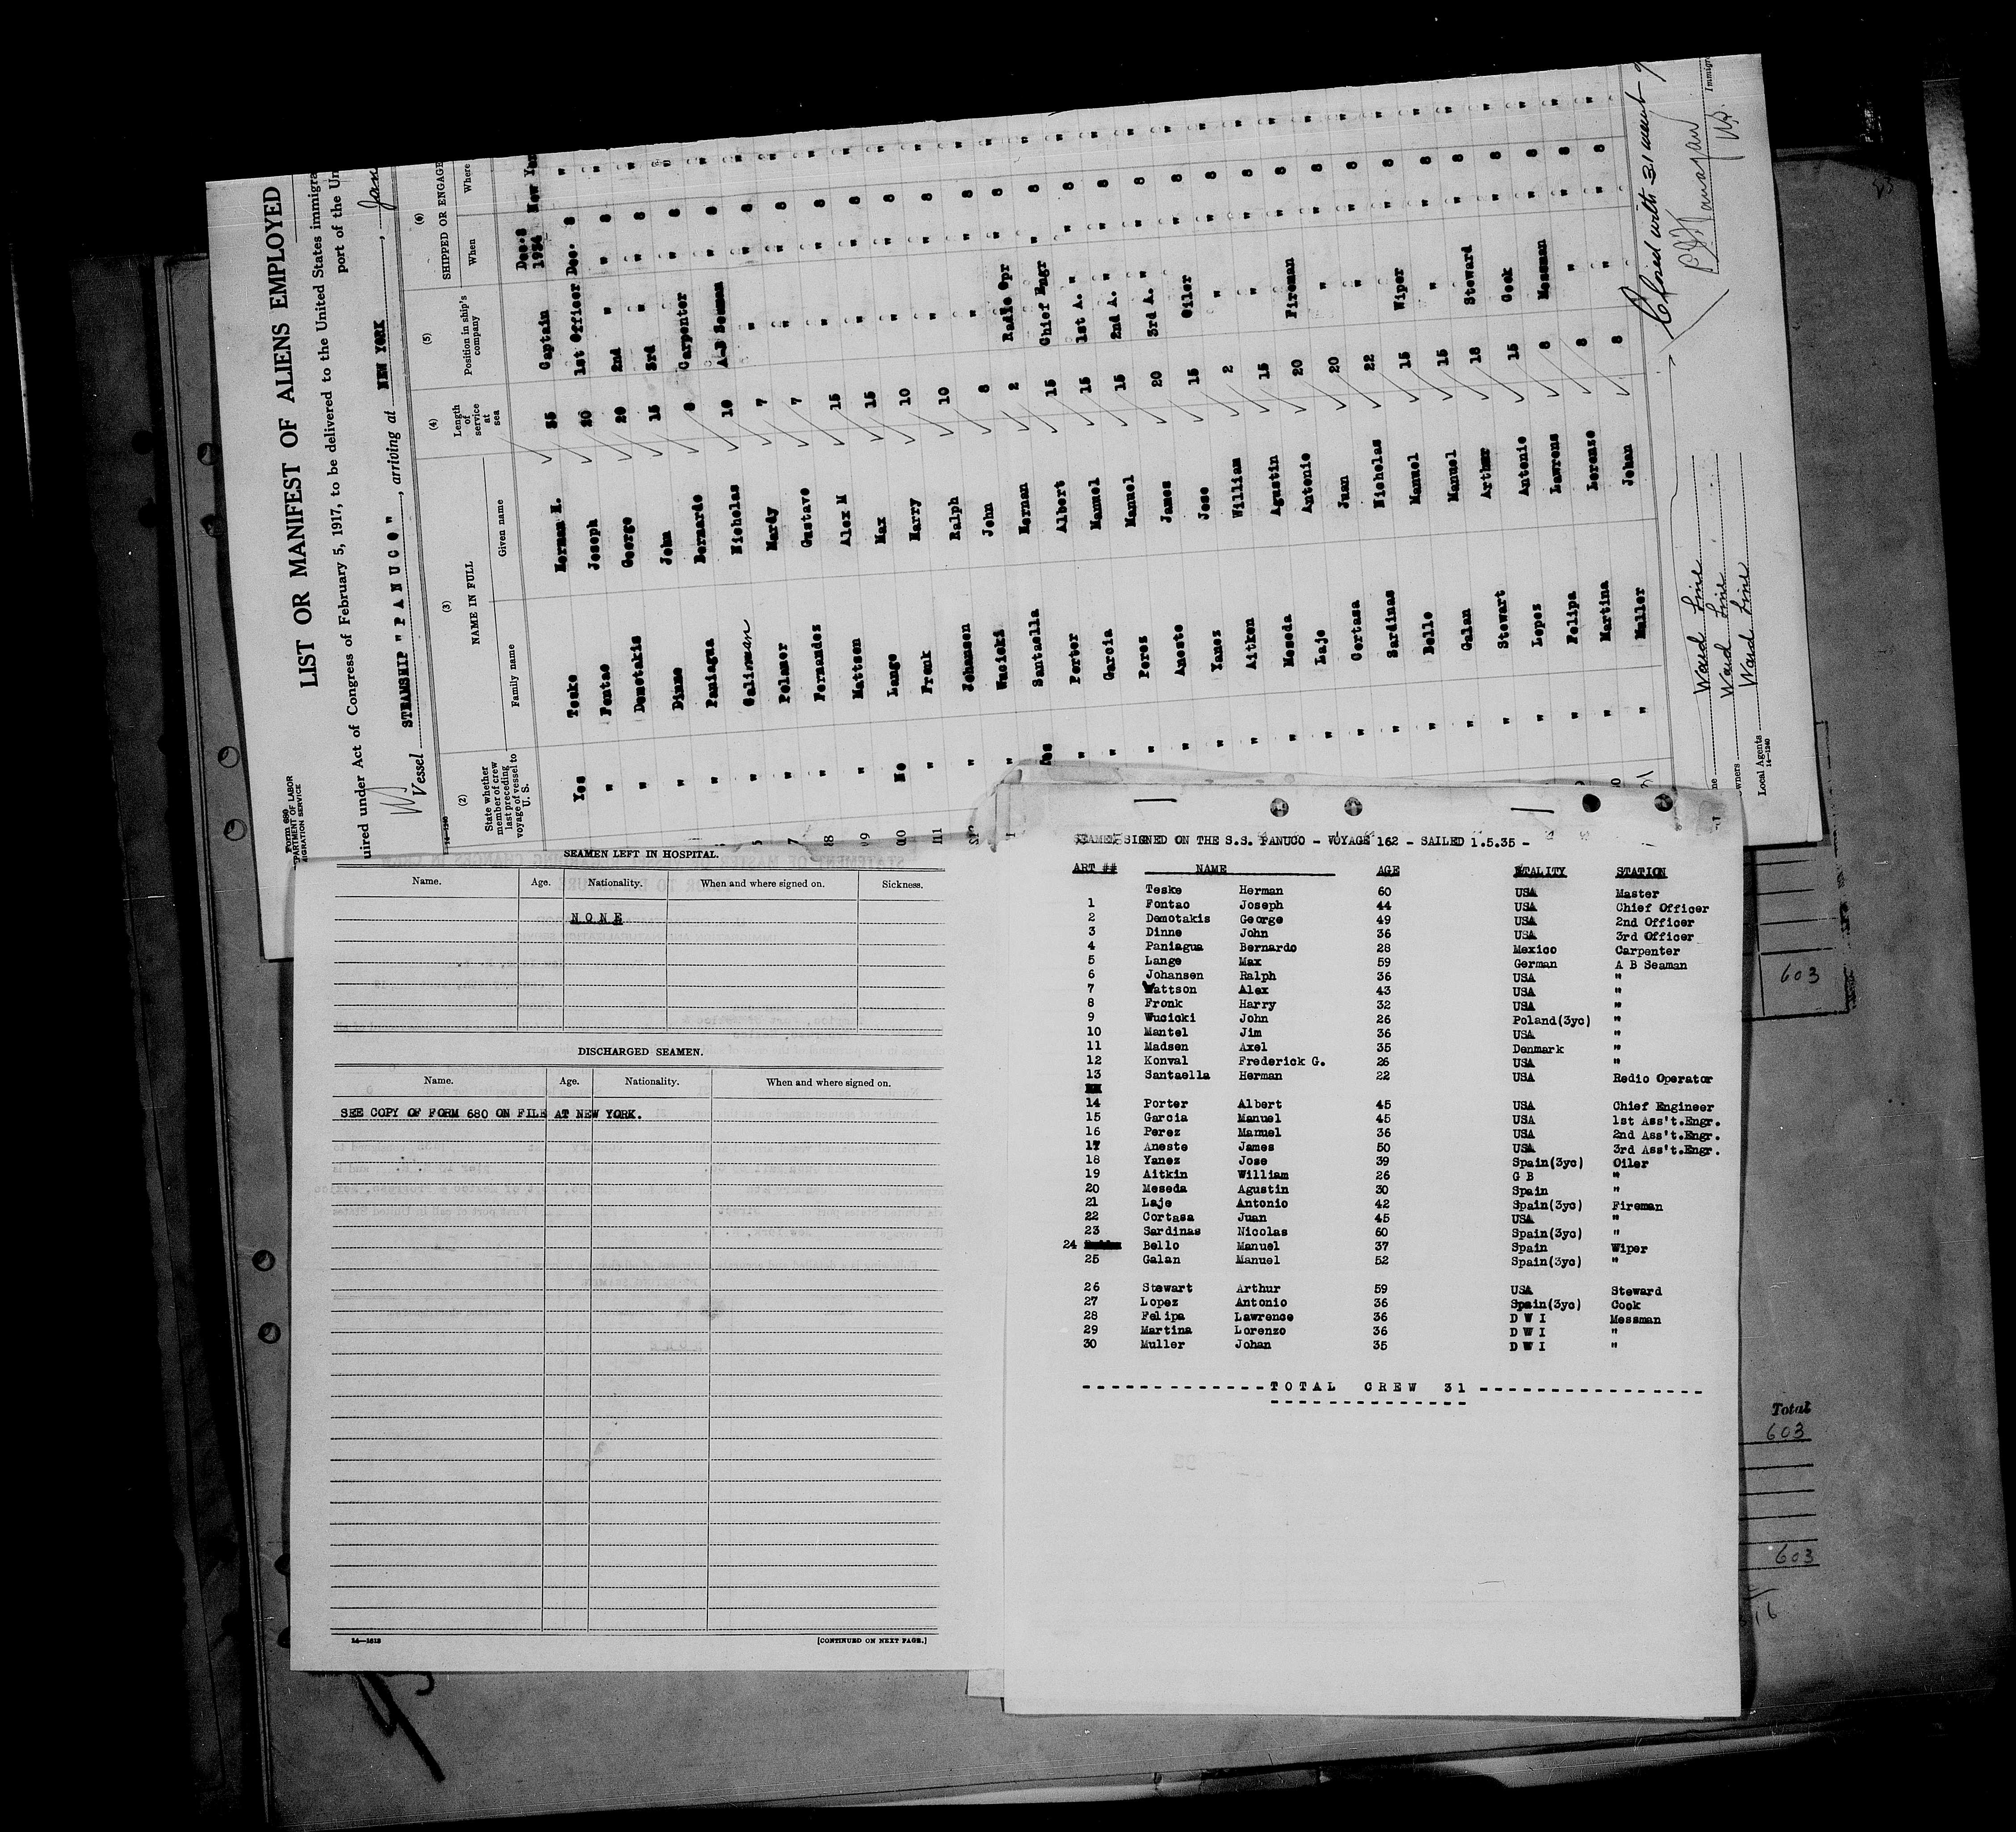 Form 680
LIST OR MANIFEST OF ALIENS EMPLOYED
uired under Act of Congress of February 5, 1917, to be delivered to the United States immigra
port of the Un
Vessel STEAMSHIP "PANUCO", arriving at NEW YORK, Jan
(2) (3) (4) (5) (6)
State whether member of crew last preceding voyage of vessel to U. S. NAME IN FULL Length of service at sea Position in ship's company SHIPPED OR ENGAGE
Family name Given name When Where
Yes Teske Herman H. 35 Captain Dec. 8 1934 New Yor
" Fontao Joseph 20 1st Officer Dec. 8 "
" Demotakis George 20 2nd " " 8 "
" Dinne John 15 3rd " " 8 "
" Paniagua Bernardo 8 Carpenter " 8 "
" Galisman Nicholas 10 A-B Seaman " 8 "
" Pelamer Hardy 7 " " 8 "
" Fernandez Gustave 7 " " 8 "
" Mattsen Alex M 15 " " 8 "
No Lange Max 15 " " 8 "
" Fronk Harry 10 " " 8 "
" Johansen Ralph 10 " " 8 "
" Wucicki John 8 " " 8 "
Yes Santaella Herman 2 Radio Opr " 8 "
" Porter Albert 15 Chief Engr " 8 "
" Garcia Manuel 15 1st A. " " 8 "
" Perez Manuel 15 2nd A. " " 8 "
" Aneste James 20 3rd A. " " 8 "
" Yanez Jose 15 Oiler " 8 "
" Aitken William 2 " " 8 "
" Meseda Agustin 15 " " 8 "
" Laje Antonio 20 Fireman " 8 "
" Cortasa Juan 20 " " 8 "
" Sardinas Nicholas 22 " " 8 "
" Bello Manuel 15 Wiper " 8 "
" Galan Manuel 15 " " 8 "
" Stewart Arthur 18 Steward " 8 "
" Lopez Antonio 15 Cook " 8 "
" Felipa Lawrens 8 Messman " 8 "
" Martina Lorenzo 8 " " 8 "
" Muller Johan 8 " " 8 "
Closed with 31 names
Ward Line
wners Ward Line
Local Agents Ward Line
14-1240
SEAMEN LEFT IN HOSPITAL.
Name. Age. Nationality. When and where signed on. Sickness.
NONE
DISCHARGED SEAMEN.
Name. Age. Nationality. When and where signed on.
SEE COPY OF FORM 680 ON FILE AT NEW YORK.
14—1613 [CONTINUED ON NEXT PAGE.]
SEAMEN SIGNED ON THE S.S. PANUCO - VOYAGE 162 - SAILED 1.5.35 -
ART ## NAME AGE NTALITY STATION
Teske Herman 60 USA Master
1 Fontao Joseph 44 USA Chief Officer
2 Demotakis George 49 USA 2nd Officer
3 Dinne John 36 USA 3rd Officer
4 Paniagua Bernardo 28 Mexico Carpenter
5 Lange Max 59 German A B Seaman
6 Johansen Ralph 36 USA "
7 Mattson Alex 43 USA "
8 Fronk Harry 32 USA "
9 Wucicki John 26 Poland(3yc) "
10 Mantel Jim 36 USA "
11 Madsen Axel 35 Denmark "
12 Konval Frederick G. 26 USA "
13 Santaella Herman 22 USA Redio Operator
14 Porter Albert 45 USA Chief Engineer
15 Garcia Manuel 45 USA 1st Ass't.Engr.
16 Perez Manuel 36 USA 2nd Ass't.Engr.
17 Aneste James 50 USA 3rd Ass't.Engr.
18 Yanez Jose 39 Spain(3yc) Oiler
19 Aitkin William 26 G B "
20 Meseda Agustin 30 Spain "
21 Laje Antonio 42 Spain(3yc) Fireman
22 Cortasa Juan 45 USA "
23 Sardinas Nicolas 60 Spain(3yc) "
24 Bello Manuel 37 Spain Wiper
25 Galan Manuel 52 Spain(3yc) "
26 Stewart Arthur 59 USA Steward
27 Lopez Antonio 36 Spain(3yc) Cook
28 Felipa Lawrence 36 D W I Messman
29 Martina Lorenzo 36 D W I "
30 Muller Johan 35 D W I "
TOTAL CREW 31
603
Total
603
603